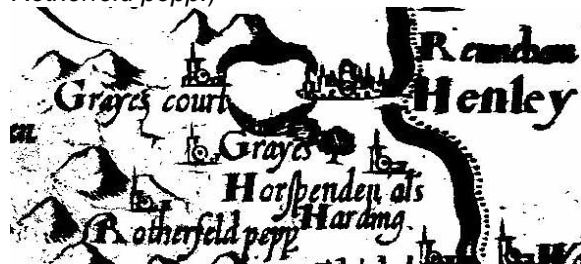 Remnham
Henley
Grayes court
Grayes
Horspenden als
Harding
Rotherfeld pepp